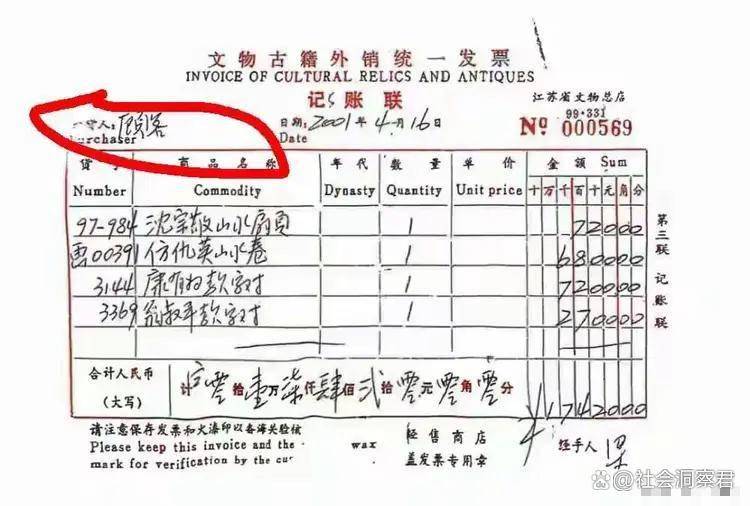 文物古籍外销统一发票
INVOICE OF CULTURAL RELICS AND ANTIQUES
记账联
江苏省文物总店
99·331
购货人：顾客 日期：2001年4月16日 Nº 000569
Purchaser Date
货号 商品名称 年代 数量 单价 金额 Sum
Number Commodity Dynasty Quantity Unit price 十万千百十元角分
97-984 沈宗敬山水扇页 1 72000
00391 仿仇英山水卷 1 680000
3144 康有为款字对 1 720000
3369 翁叔平款字对 1 270000
第三联 记账联
合计人民币
(大写)
计 零拾壹万柒仟肆佰贰 零元零角零分 ¥1742000
请注意保存发票和火漆印以备海关验核
Please keep this invoice and the wax
mark for verification by the cur
经售商店
盖发票专用章
经手人
@社会洞察君